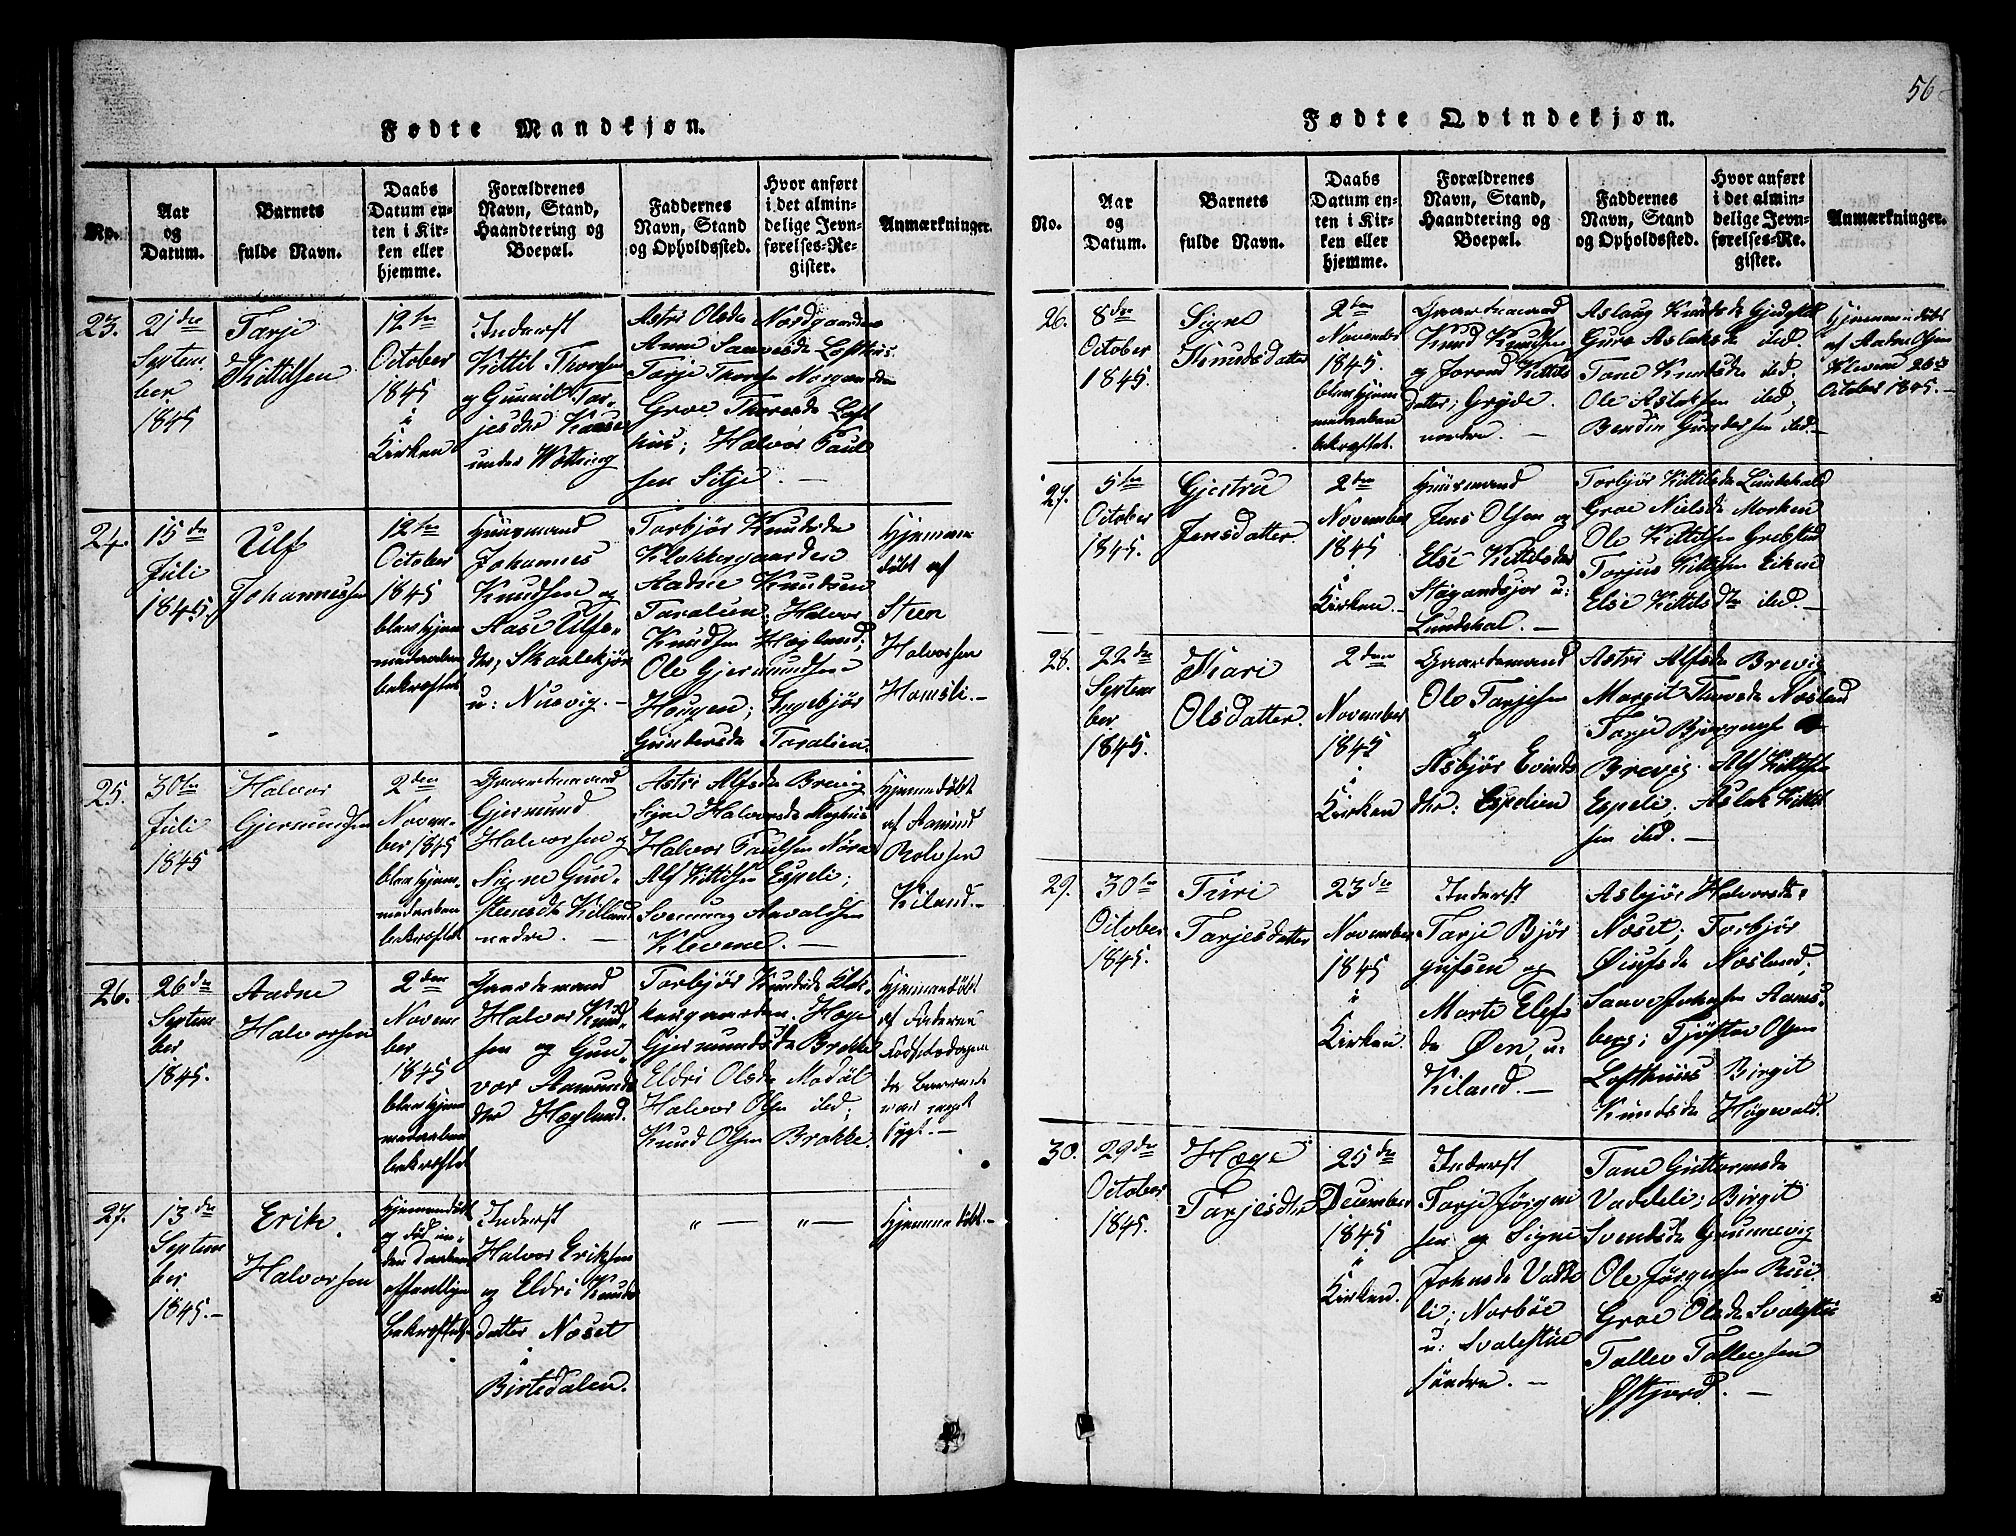 Fødte Mandkjøn.
No.
Aar
og
Datum.
Barnets
fulde Navn.
Daabs
Datum en-
ten i Kir-
ken eller
hjemme.
Forældrenes
Navn, Stand,
Haandtering og
Boepæl.
Faddernes
Navn, Stand
og Opholdssted.
Hvor anført
i det almin-
delige Jevn-
førelses-Re-
gister.
Anmærkninger.
23.
21de
Septem-
ber
1845
Tarje
Kittelsen
12te
October
1845
i
Kirken
Inderst
Kittil Thorsen
og Gunild Tar-
jesdtr Kaase
under
Astri Olsdr Nordgaarden
Anne Saavesdr Lofthus
Tarje Thorsen Norgaarden
Groe Thoresdr Loft
hus; Halvor Paul
sen Sitje. —
24.
15de
Juli
1845.
Ulf
Johannessen
12te
October
1845
blev hjem̄e
medaaben
bekræftet
Huusmand
Johannes
Knudsen og
Aase Ulfs-
dtr, Skarlekjøn
u: Nusvig. —
Torbjør Knudsdr
Klokkergaarden
Aadne Knudsen
Taralien; Halvor
Knudsen Høgland;
Ole Gjermundsen
Hougen; Ingebjør
Gundersdr Taralien.
Hjemme
døbt af
Steen
Halvorsen
Homsli. —
25.
30te
Juli
1845
Halvor
Gjermundsen
2den
Novem-
ber 1845
blev hjem-
medaaben
bekræftet
Gaardmand
Gjermund
Halvorsen og
Signe Gun-
stensdr Kiland
nedre. —
Astri Alfsdr Brevig
Signe Halvorsdr
Halvor Paulsen
Alf Kittilsen Espeli;
Svenung Aavaldsen
Klevene. —
Hjemmedøbt
af Aamund
Rolvsen
Kiland. —
26.
26de
Septem
ber
1845.
Aadne
Halvorsen
2den
Novem
ber
1845
blev hjem
medaaben
bekræftet
Gaardemand
Halvor Knud-
sen og Gun-
vor Aamunds
dtr Høgland.
Torbjør Knudsdr Klok-
kergaarden. Hæge
Gjermundsdr Brokke
Eldri Olsdr
Halvor Olsen ibd;
Knud Olsen Brokke.
Hjemmedøbt
af Faderen
Fødselsdagen
da Barnet
var meget
sygt. —
27.
13de
Septem
ber
1845. —
Erik
Halvorsen
Hjemmedøbt
og død in-
den Daabens
offentlige
Bekræftelse.
Inderst
Halvor Eriksen
og Eldri Knuds
datter Næset
i
Birtedalen.
" — " —
Hjemmedøbt. —
56
Fødte Qvindekjøn.
No.
Aar
og
Datum.
Barnets
fulde Navn.
Daabs
Datum en-
ten i Kir-
ken eller
hjemme.
Forældrenes
Navn, Stand,
Haandtering og
Boepæl.
Faddernes
Navn, Stand
og Opholdssted.
Hvor anført
i det almin-
delige Jevn-
førelses-Re-
gister.
Anmærkninger.
26.
8de
October
1845.
Signe
Knudsdatter
2den
November
1845.
blev hjem
medaaben
bekræftet.
Gaardmand
Knud Knudsen
og Jorand Kittils
datter; Gryde
nordre. —
Aslaug Knudsdr
Guro Aslaksdr ibd.
Tone Knudsdr ibd.
Ole Aslaksen ibd;
Bendix Gundersen ibd. —
Hjemmedøbt
af Aadne Olsen
Klevene 26de
October 1845. —
27.
5te
October
1845.
Gjertru
Jensdatter.
2den
November
1845
i
Kirken. —
Huusmand
Jens Olsen og
Else Kittilsdr
u:
Lundehal. —
Torbjør Kittilsdr Lundehal
Groe Nielsdr Morken
Ole Kittilsen Grobstad
Torjus Kittilsen Eiken
Else Kittilsdtr ibd. —
28.
22de
Septem
ber
1845.
Kari
Olsdatter.
2den
November
1845
i
Kirken
Gaardemand
Ole Tarjesen
og
Asbjør Evinds
dtr: Espelien
Astri Alfsdr Brevig
Margit Næsland
Tarje
Brevig. Alf Kittilsen
Espeli; Aslak Kittil
sen ibd. —
29.
30te
October
1845.
Turi
Tarjesdatter
23de
November
1845
i
Kirken.
Inderst
Tarje Bjør
gufsen og
Marte Elefs
dr Øen, u:
Kiland. —
Asbjør Halvorsdtr
Næset; Torbjør
Øiufsdr Næsland;
Saave Johnsen Aams-
berg; Tjøstov Olsen
Lofthuus Birgit
Knudsdr Høgevold.
30.
29de
October
1845.
Hæge
Tarjesdtr
25de
December
1845
i
Kirken.
Inderst
Tarje Jørgen
sen og Signe
Johnsdr Vadde
li; Norbøe
u: Svalestue
søndre. —
Tone Guttormsdr
Vaddeli; Birgit
Svendsdr Grunnevig
Ole Jørgensen Rui
Groe Olsdr Svalestue
Tallev Tallevsen
Østjord. —